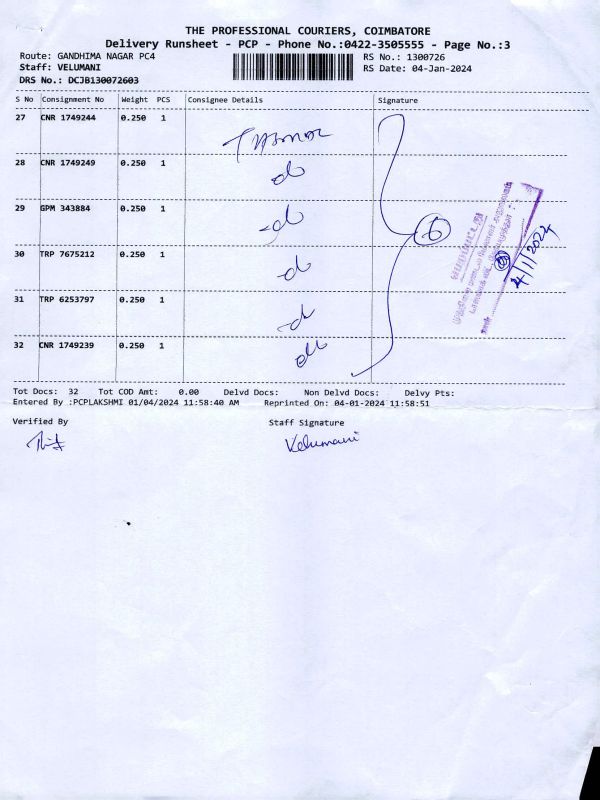 THE PROFESSIONAL COURIERS, COIMBATORE
Delivery Runsheet - PCP - Phone No.:0422-3505555 - Page No.:3
Route: GANDHIMA NAGAR PC4
RS No.: 1300726
Staff: VELUMANI
RS Date: 04-Jan-2024
DRS No.: DCJB130072603
S No Consignment No Weight PCS Consignee Details Signature
27 CNR 1749244 0.250 1
28 CNR 1749249 0.250 1
29 GPM 343884 0.250 1
6
30 TRP 7675212 0.250 1
31 TRP 6253797 0.250 1
32 CNR 1749239 0.250 1
4/1/2024
Tot Docs: 32 Tot COD Amt: 0.00 Delvd Docs: Non Delvd Docs: Delvy Pts:
Entered By :PCPLAKSHMI 01/04/2024 11:58:40 AM Reprinted On: 04-01-2024 11:58:51
Verified By Staff Signature
Velumani